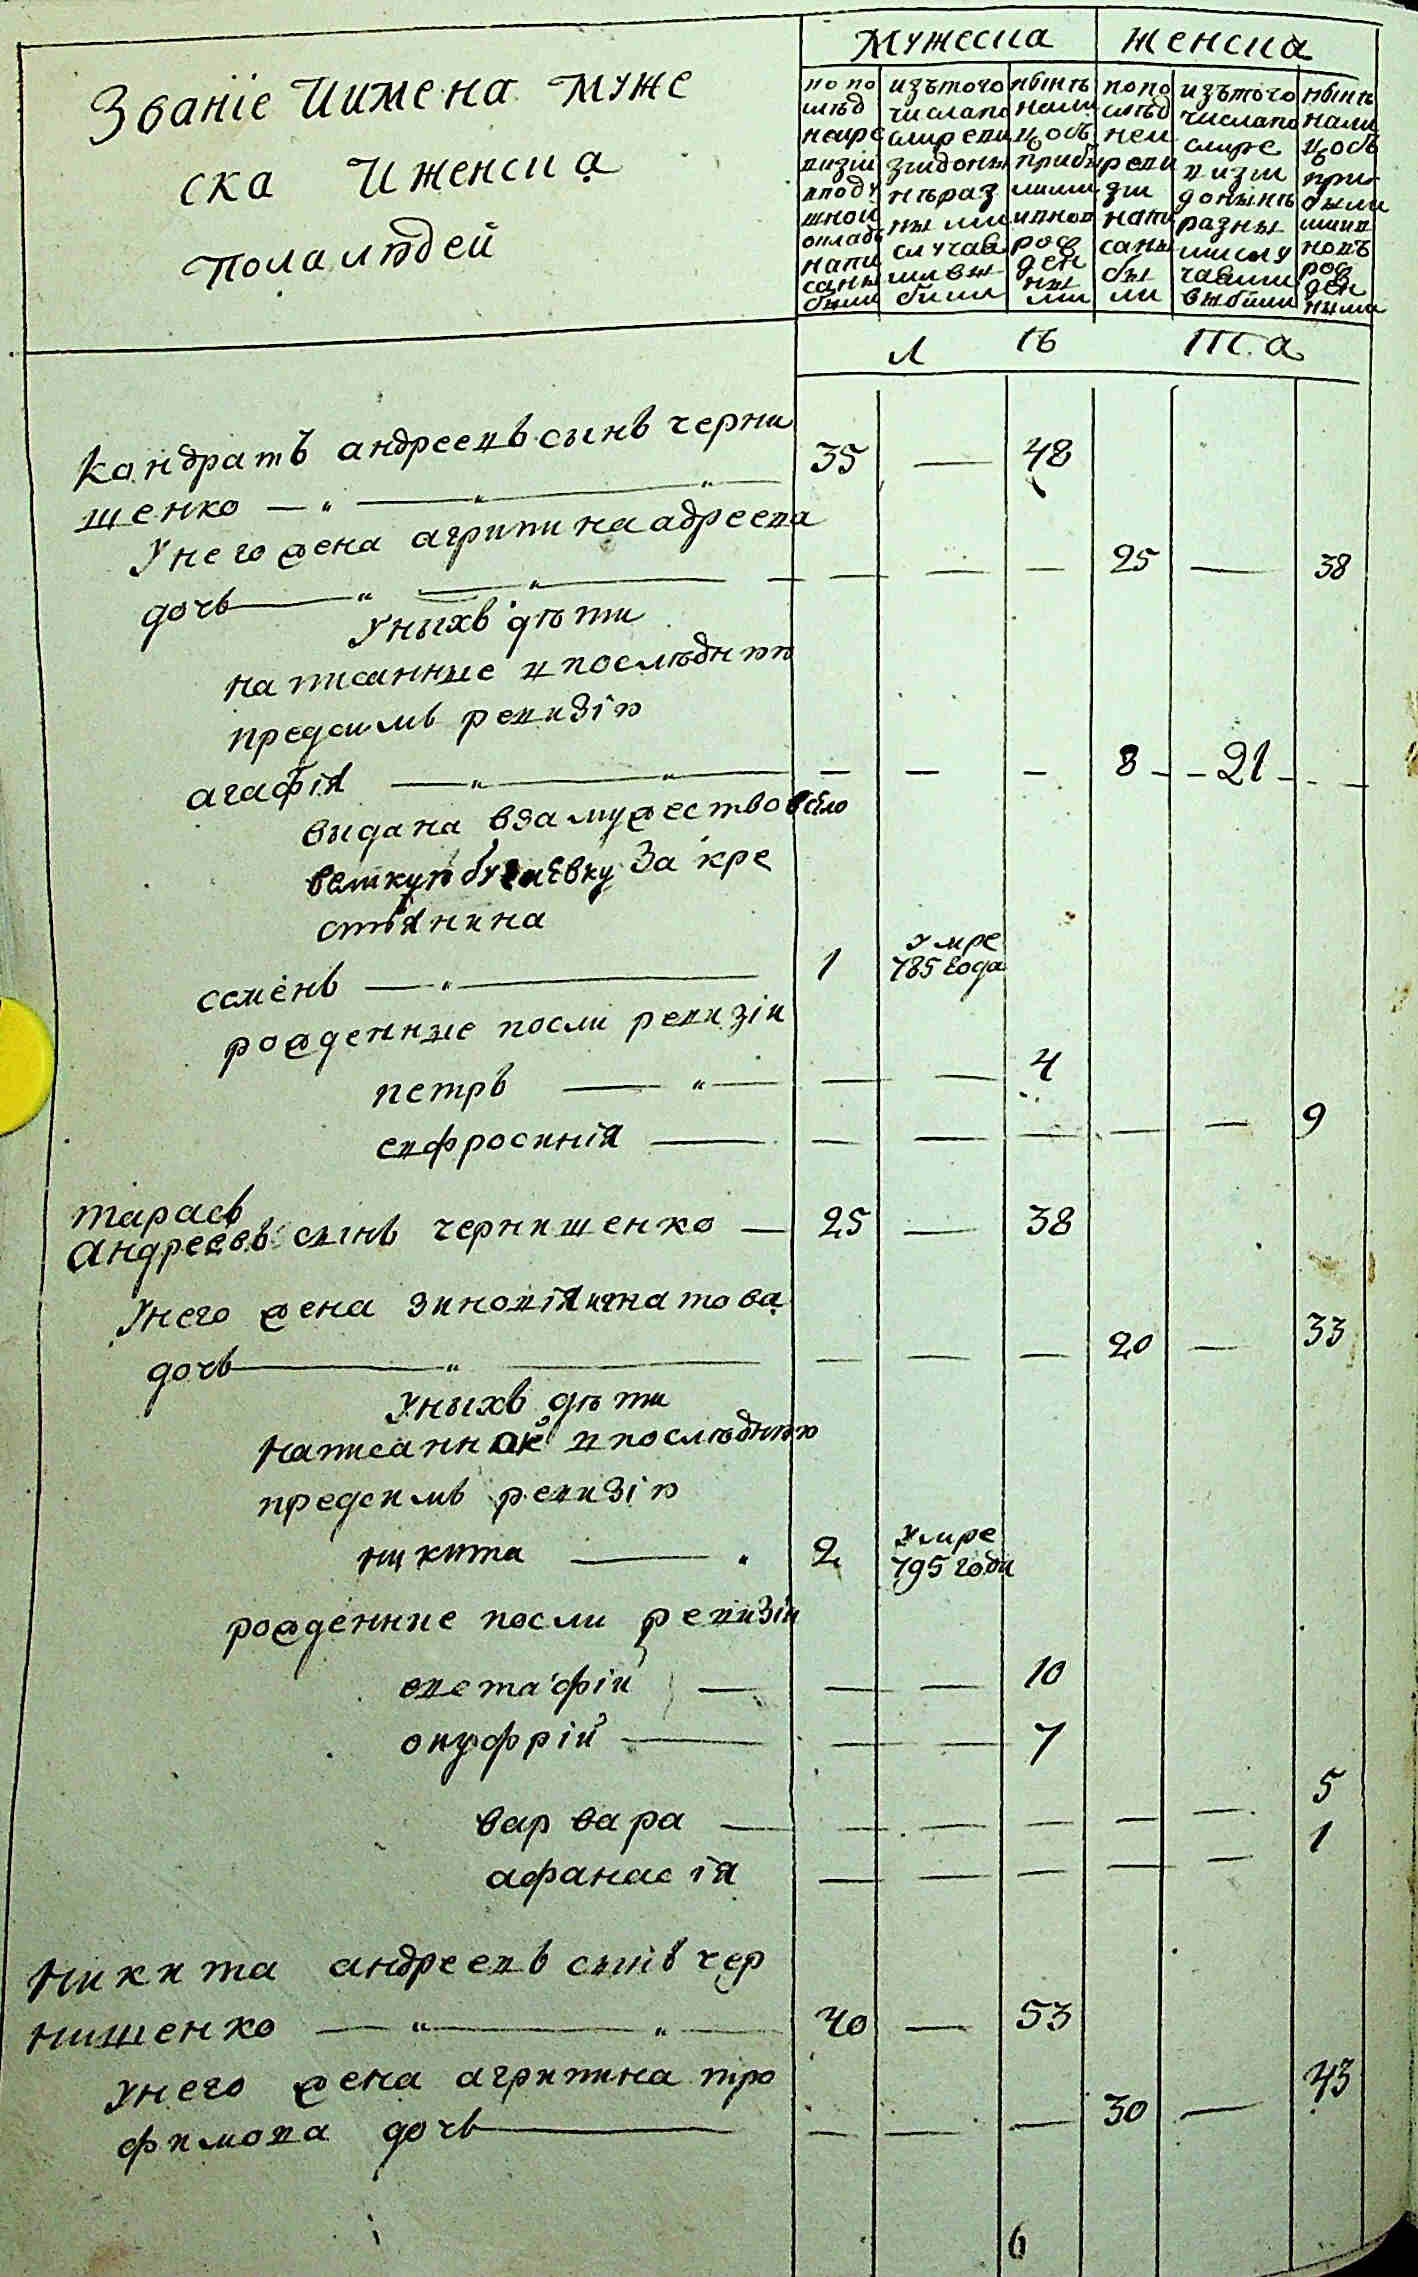 Званіе Иимена муже
ска Иженска
пола людей
Мужеска
женска
по по
слѣд
ней ре
визіи
вподу
шной
окладъ
написаны
были
изътого
числа по
слѣ реви
зіи доны
нѣ раз
ны ми
случая
ми вы
были
нынѣ
нали
цо съ
прибы
лыми
и внов
рож
ден
ны
ми
по по
слѣд
ней
реви
зіи
напи
саны
бы
ли
изътого
числа по
слѣ ре
визіи
донынѣ
разны
ми слу
чаями
выбыли
нынѣ
нали
цо съ
при
были
ми и в
новъ
рож
ден
ными
Л ѣ та
Кондратъ андреевъ сынъ черни
шенко — „ — „ — „ — 35 — 48
Унего жена агрипина адреева
дочь — „ — „ — — — — 25 — 38
Уныхъ дѣти
написанные в послѣднюю
предсимъ ревизію
агафія — „ — „ — — — — 8 — 21 —
выдана взамужество в село
великую За кре
стьянина
семенъ — „ — 1 Умре
785 года
рожденные посли ревизіи
петръ — „ — — — 4
евфросинія — — — — — — 9
тарасъ
андреевъ сынъ чернишенко — 25 — 38
Унего жена зиновія игнатова
дочь — „ — — — — 20 — 33
Уныхъ дѣти
написанные в послѣднюю
предсимъ ревизію
никита — „ 2 Умре
795 года
рожденные посли ревизіи
евстафій — — — 10
онуфрій — — — 7
варвара — — — — — — 5
афанасія — — — — — 1
Никита андреевъ сынъ чер
нишенко — „ — „ — 40 — 53
Унего жена агрипина тро
фимова дочь — — — — 30 — 43
6